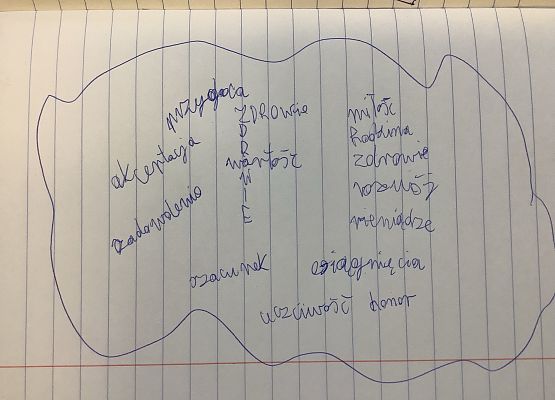 przygoda
ZDROWIE
D
R
O
W
I
E
akceptacja
wartość
zadowolenie
miłość
Rodzina
zdrowie
pieniądze
szacunek osiągnięcia
uczciwość honor